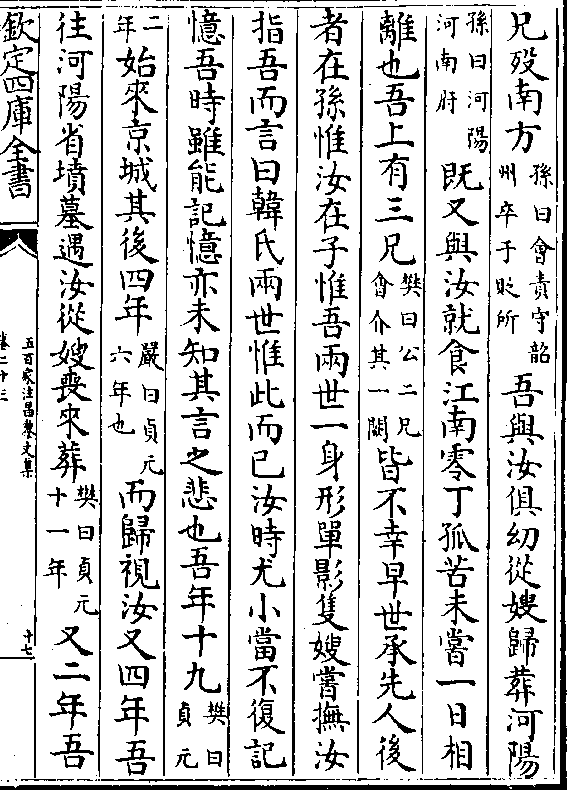 兄歿南方孫曰會責守韶州卒于貶所吾與汝俱幼從嫂歸葬河陽
孫曰河陽河南府既又與汝就食江南零丁孤苦未嘗一日相
離也吾上有三兄樊曰公二兄會介其一闕皆不幸早世承先人後
者在孫惟汝在子惟吾兩世一身形單影隻嫂嘗撫汝
指吾而言曰韓氏兩世惟此而已汝時尤小當不復記
憶吾時雖能記憶亦未知其言之悲也吾年十九樊曰貞元
二年始來京城其後四年嚴曰貞元六年也而歸視汝又四年吾
往河陽省墳墓遇汝從嫂喪來葬樊曰貞元十一年又二年吾
欽定四庫全書
五百家注昌黎文集
卷二十三
十七